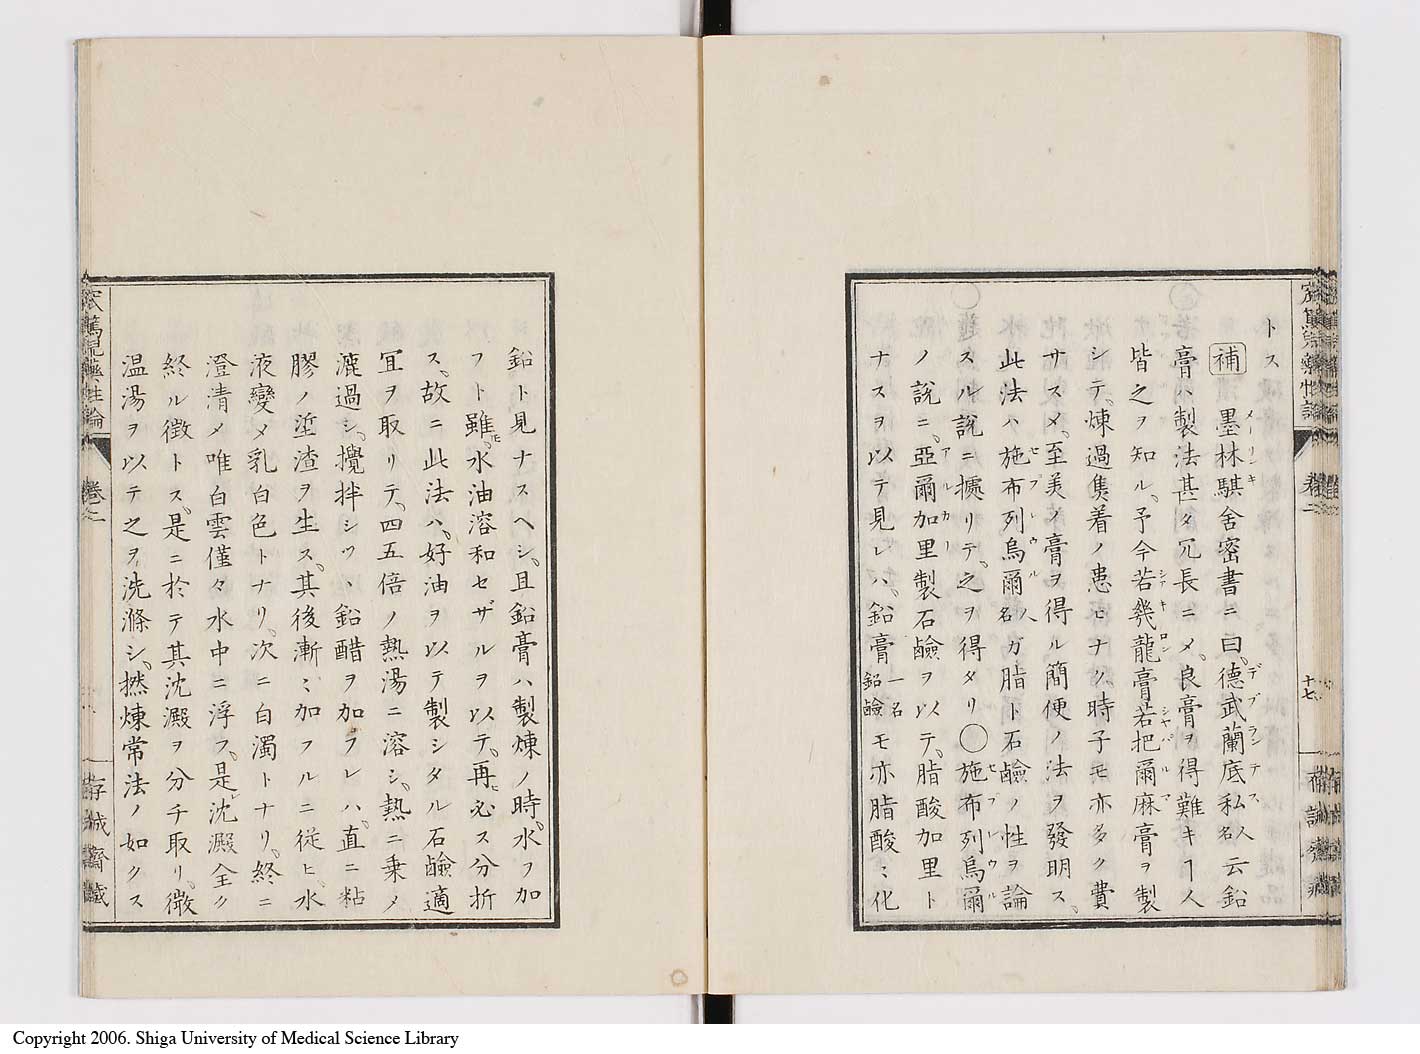 窊篤児薬性論
卷二
十七
存誠齋蔵
トス
補 墨林騏舎密書ニ曰德武蘭底私人名云鉛
膏ハ製法甚タ冗長ニメ良膏ヲ得難キヿ人
皆之ヲ知ル予今若幾龍膏若把爾麻膏ヲ製
シテ煉過焦着ノ患ヒナクノ時子モ亦多ク費
サスメ至美ノ膏ヲ得ル簡便ノ法ヲ發明ス
此法ハ施布列烏爾人名ガ脂ト石鹼ノ性ヲ論
スル説ニ據リテ之ヲ得タリ〇施布列烏爾
ノ説ニ亞爾加里製石鹼ヲ以テ脂酸加里ト
ナスヲ以テ見レハ鉛膏一名鉛鹼モ亦脂酸ミ化
鉛ト見ナスヘシ且鉛膏ハ製煉ノ時水ヲ加
フト雖モ水油溶和セザルヲ以テ再ヒ必ス分析
ス故ニ此法ハ好油ヲ以テ製シタル石鹼適
宜ヲ取リテ四五倍ノ熱湯ニ溶シ熱ニ乗メ
漉過シ攪拌シツヽ鉛醋ヲ加フレハ直ニ粘
膠ノ埿渣ヲ生ス其後漸ミ加フルニ従ヒ水
液變メ乳白色トナリ次ニ白濁トナリ終ニ
澄清メ唯白雲僅々水中ニ浮フ是レ沈澱全ク
終ル徴トス是ニ於テ其沈澱ヲ分チ取リ微
温湯ヲ以テ之ヲ洗滌シ撚煉常法ノ如クス
窊篤児薬性論
卷二
存誠齋蔵
Copyright 2006. Shiga University of Medical Science Library